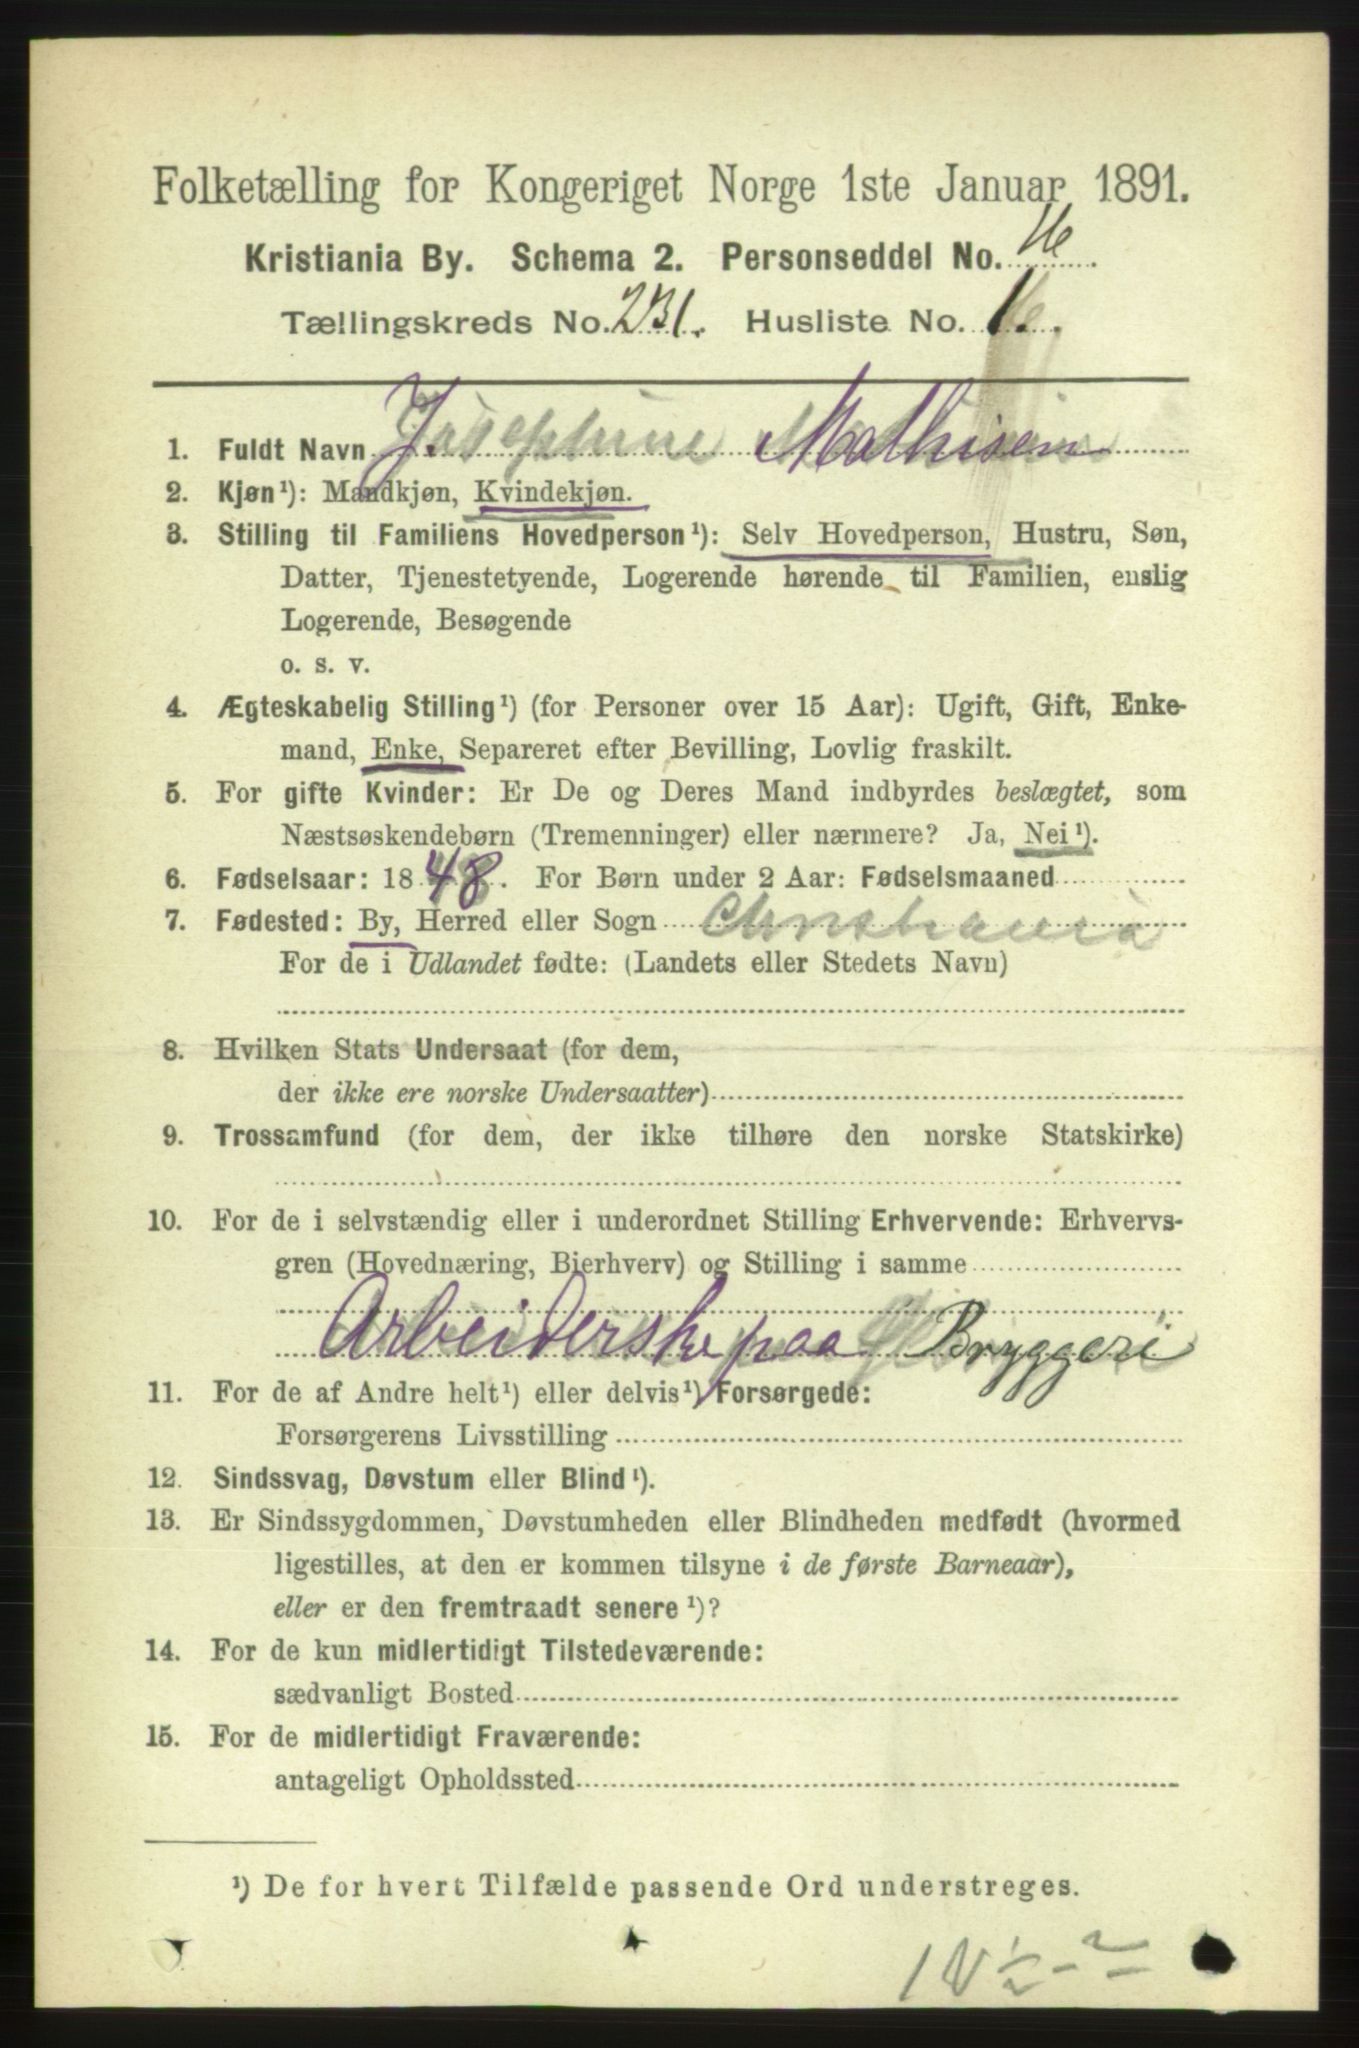 Folketælling for Kongeriget Norge 1ste Januar 1891.
Kristiania By. Schema 2. Personseddel No. 16
Tællingskreds No. 231. Husliste No. 1.
1. Fuldt Navn J. Josephine Mathisen
2. Kjøn¹): Mandkjøn, Kvindekjøn.
3. Stilling til Familiens Hovedperson¹): Selv Hovedperson, Hustru, Søn,
Datter, Tjenestetyende, Logerende hørende til Familien, enslig
Logerende, Besøgende
o. s. v.
4. Ægteskabelig Stilling¹) (for Personer over 15 Aar): Ugift, Gift, Enke-
mand, Enke, Separeret efter Bevilling, Lovlig fraskilt.
5. For gifte Kvinder: Er De og Deres Mand indbyrdes beslægtet, som
Næstsøskendebørn (Tremenninger) eller nærmere? Ja, Nei¹).
6. Fødselsaar: 1848. For Børn under 2 Aar: Fødselsmaaned
7. Fødested: By, Herred eller Sogn Christiania
For de i Udlandet fødte: (Landets eller Stedets Navn)
8. Hvilken Stats Undersaat (for dem,
der ikke ere norske Undersaatter)
9. Trossamfund (for dem, der ikke tilhøre den norske Statskirke)
10. For de i selvstændig eller i underordnet Stilling Erhvervende: Erhvervs-
gren (Hovednæring, Bierhverv) og Stilling i samme
Arbeiderske paa Bryggeri
11. For de af Andre helt¹) eller delvis¹) Forsørgede:
Forsørgerens Livsstilling
12. Sindssvag, Døvstum eller Blind¹).
13. Er Sindssygdommen, Døvstumheden eller Blindheden medfødt (hvormed
ligestilles, at den er kommen tilsyne i de første Barneaar),
eller er den fremtraadt senere¹)?
14. For de kun midlertidigt Tilstedeværende:
sædvanligt Bosted
15. For de midlertidigt Fraværende:
antageligt Opholdssted
¹) De for hvert Tilfælde passende Ord understreges.